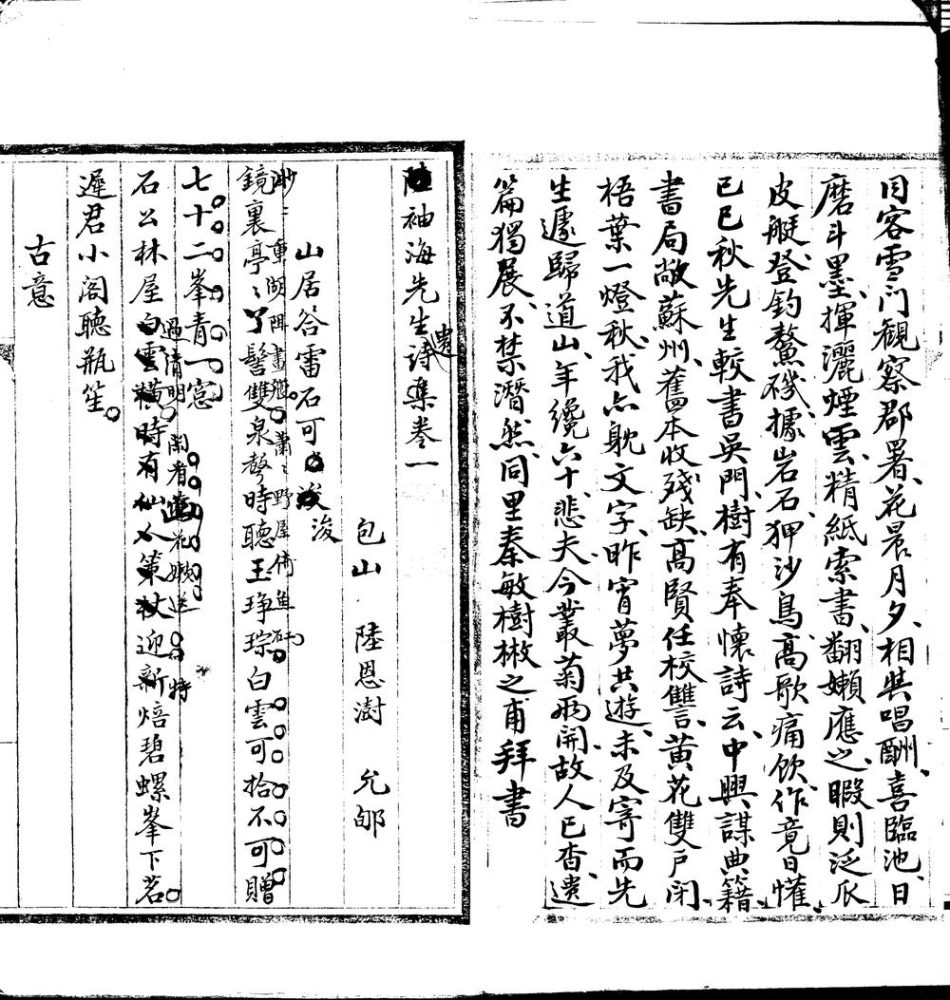 同客雪門觀察郡署、花晨月夕、相與唱酬、喜臨池、日
磨斗墨、揮灑煙雲、精紙索書、翻嬾應之、暇則泛瓜
皮艇、登釣鰲磯、據岩石狎沙鳥、高歌痛飲、作竟日懽、
已巳秋先生較書吳門、樹有奉懷詩云、中興謀典籍、
書局敞蘇州、舊本收殘缺、高賢任校讐、黃花雙戶閉、
梧葉一燈秋、我亦耽文字、昨宵夢共遊、未及寄而先
生遽歸道山、年纔六十、悲夫、今叢菊兩開、故人已杳、遺
篇獨展、不禁潸然、同里秦敏樹楙之甫拜書
陸袖海先生遺詩集卷一
包山 陸恩澍 允郇
山居答雷石可浚
鏡裏亭亭丫髻雙泉聲時聽玉琤琮白雲可拾不可贈
渺渺重湖開畫艭蕭蕭野屋倚魚矼
七十二峯青一窓
過清明閒看
石公林屋白雲橫時有仙人策杖迎新焙碧螺峯下茗
遲君小閣聽瓶笙
古意